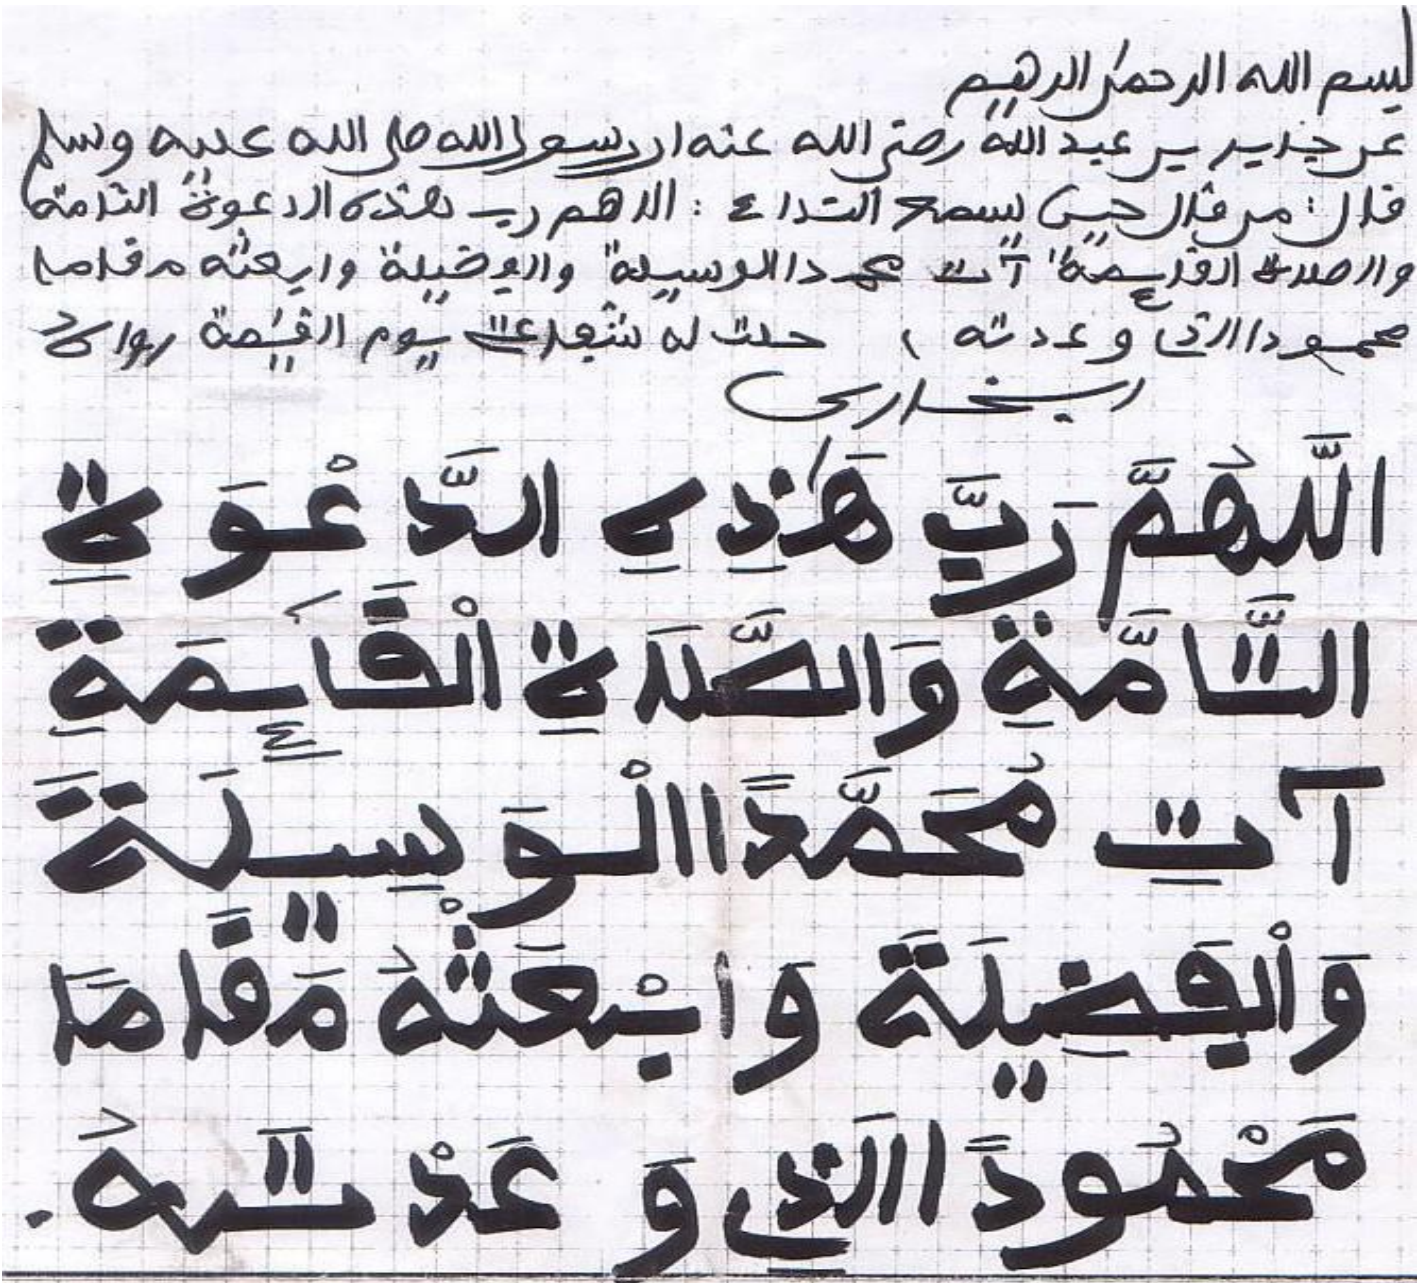 بسم الله الرحمن الرحيم
عن جابر بن عبد الله رضي الله عنه ان رسول الله صلى الله عليه وسلم
قال: من قال حين يسمع النداء: اللهم رب هذه الدعوة التامة
والصلاة القائمة آت محمدا الوسيلة والفضيلة وابعثه مقاما
محمودا الذي وعدته، حلت له شفاعتي يوم القيمة رواه
البخاري
اللَّهُمَّ رَبَّ هَٰذِهِ الدَّعْوَةِ
التَّامَّةِ وَالصَّلَاةِ الْقَائِمَةِ
آتِ مُحَمَّدًا الْوَسِيلَةَ
وَالْڢَضِيلَةَ وَابْعَثْهُ مَڧَامًا
مَحْمُودًا الَّذِي وَعَدْتَهُ.